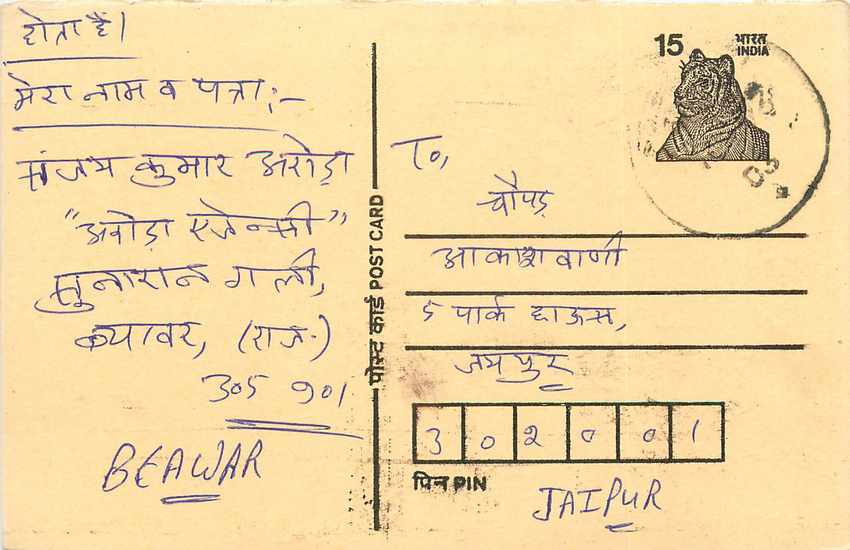 होता है।
मेरा नाम व पता:-
संजय कुमार अरोड़ा
"अरोड़ा एजेन्सी"
सुनारान गली,
ब्यावर, (राज.)
305 901
BEAWAR
पोस्ट कार्ड POST CARD
15
भारत
INDIA
To,
चौपड़
आकाशवाणी
5 पार्क हाऊस,
जयपुर
302001
पिन PIN
JAIPUR